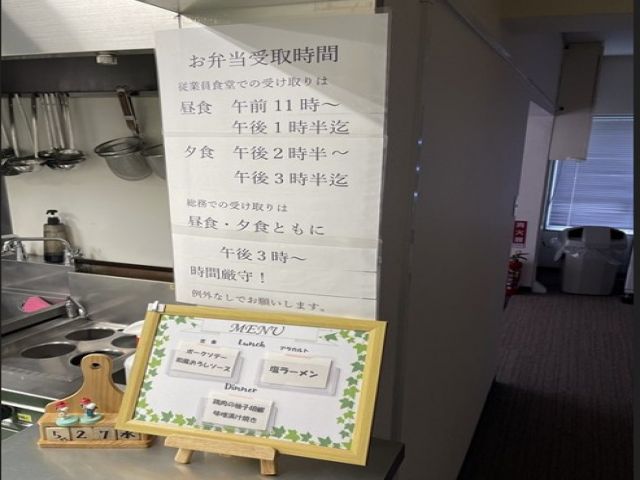 お弁当受取時間
従業員食堂での受け取りは
昼食 午前11時～
午後1時半迄
夕食 午後2時半～
午後3時半迄
総務での受け取りは
昼食・夕食ともに
午後3時～
時間厳守！
例外なしでお願いします。
MENU
Lunch
定食
アラカルト
ポークソテー
和風おろしソース
塩ラーメン
Dinner
鶏肉の柚子胡椒
味噌漬け焼き
5 27 木
消火器